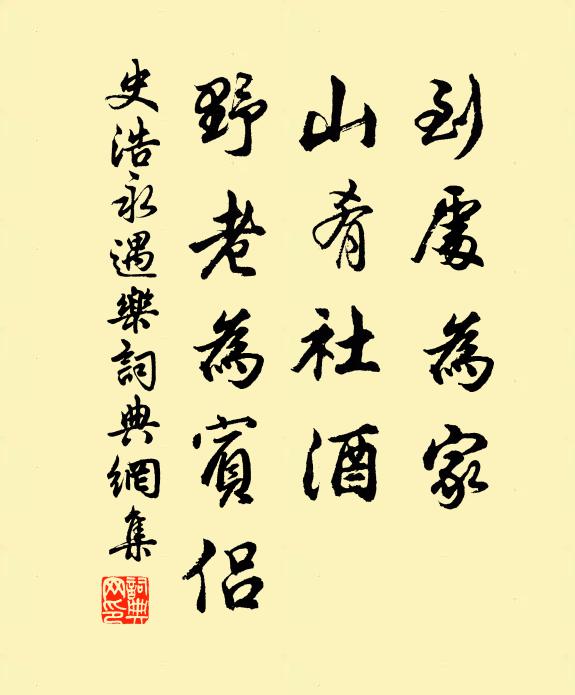 到處為家
山肴社酒
野老為賓侶
史浩永遇樂詞典網集
詞典網印